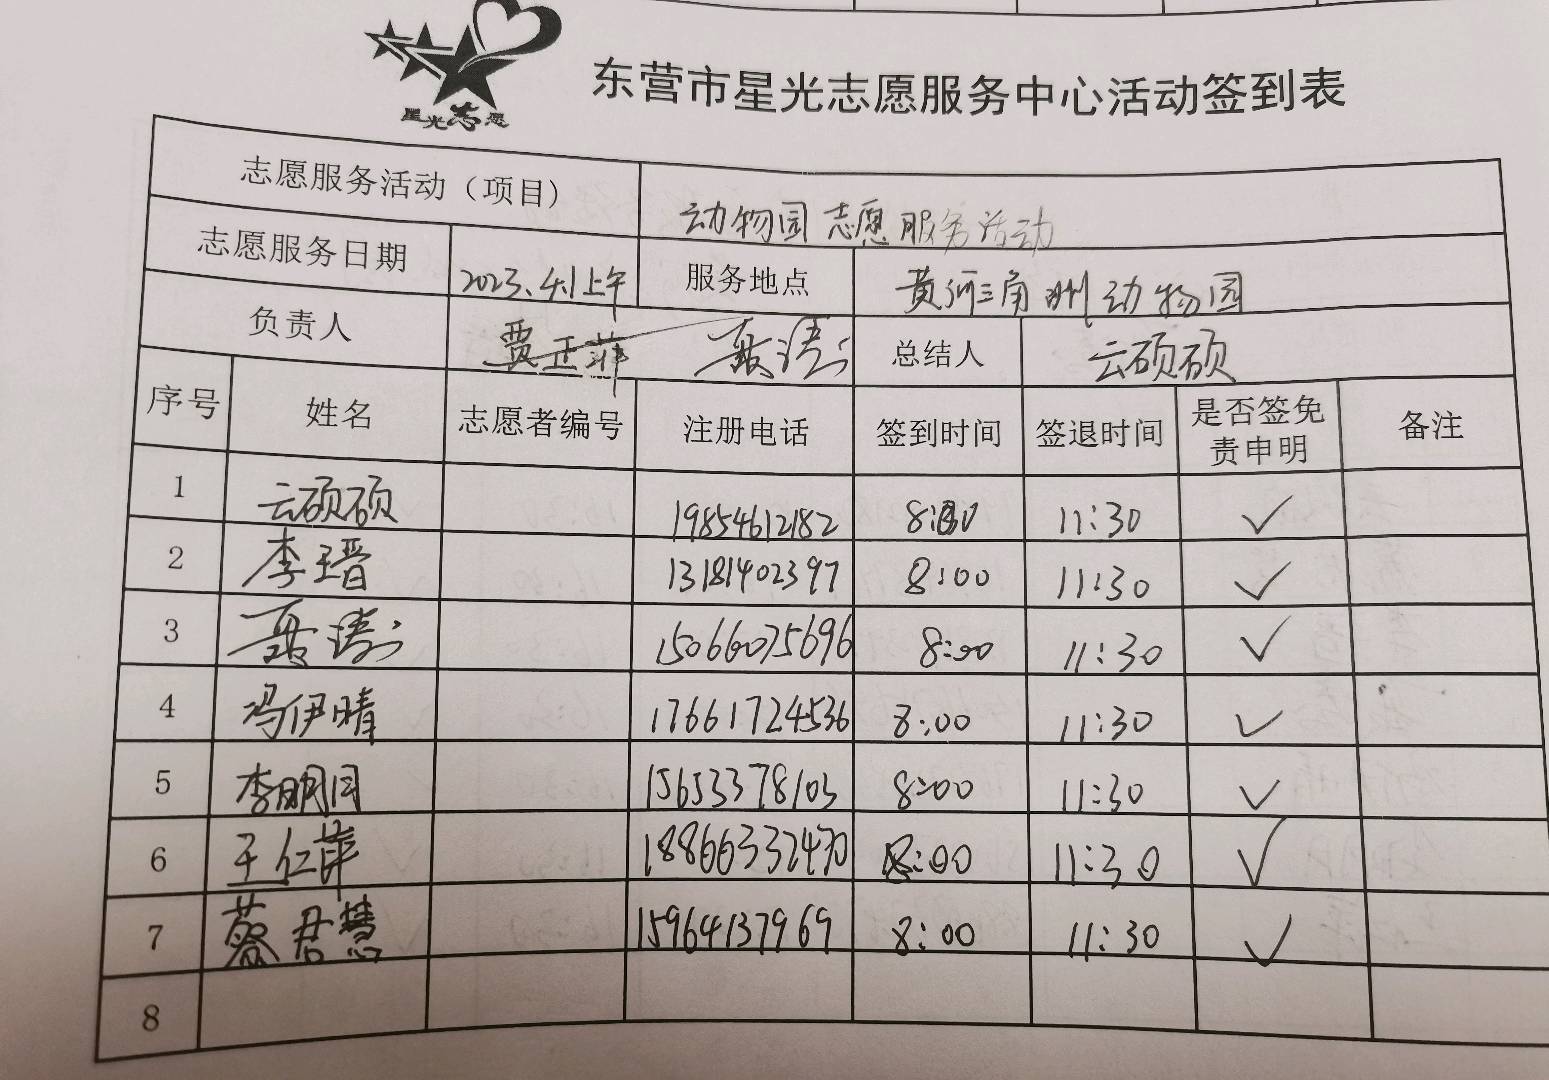 星光志愿
东营市星光志愿服务中心活动签到表
志愿服务活动（项目） 动物园志愿服务活动
志愿服务日期 2023.4.1上午 服务地点 黄河三角洲动物园
负责人 贾正菲 聂涛 总结人 云硕硕
序号 姓名 志愿者编号 注册电话 签到时间 签退时间 是否签免责申明 备注
1 云硕硕 19854612182 8:00 11:30 ✓
2 李瑨 13181402397 8:00 11:30 ✓
3 聂涛 15066075696 8:00 11:30 ✓
4 冯伊晴 17661724536 8:00 11:30 ✓
5 李明闫 15653378103 8:00 11:30 ✓
6 王仁萍 18866332470 8:00 11:30 ✓
7 蔡君慧 15964137969 8:00 11:30 ✓
8